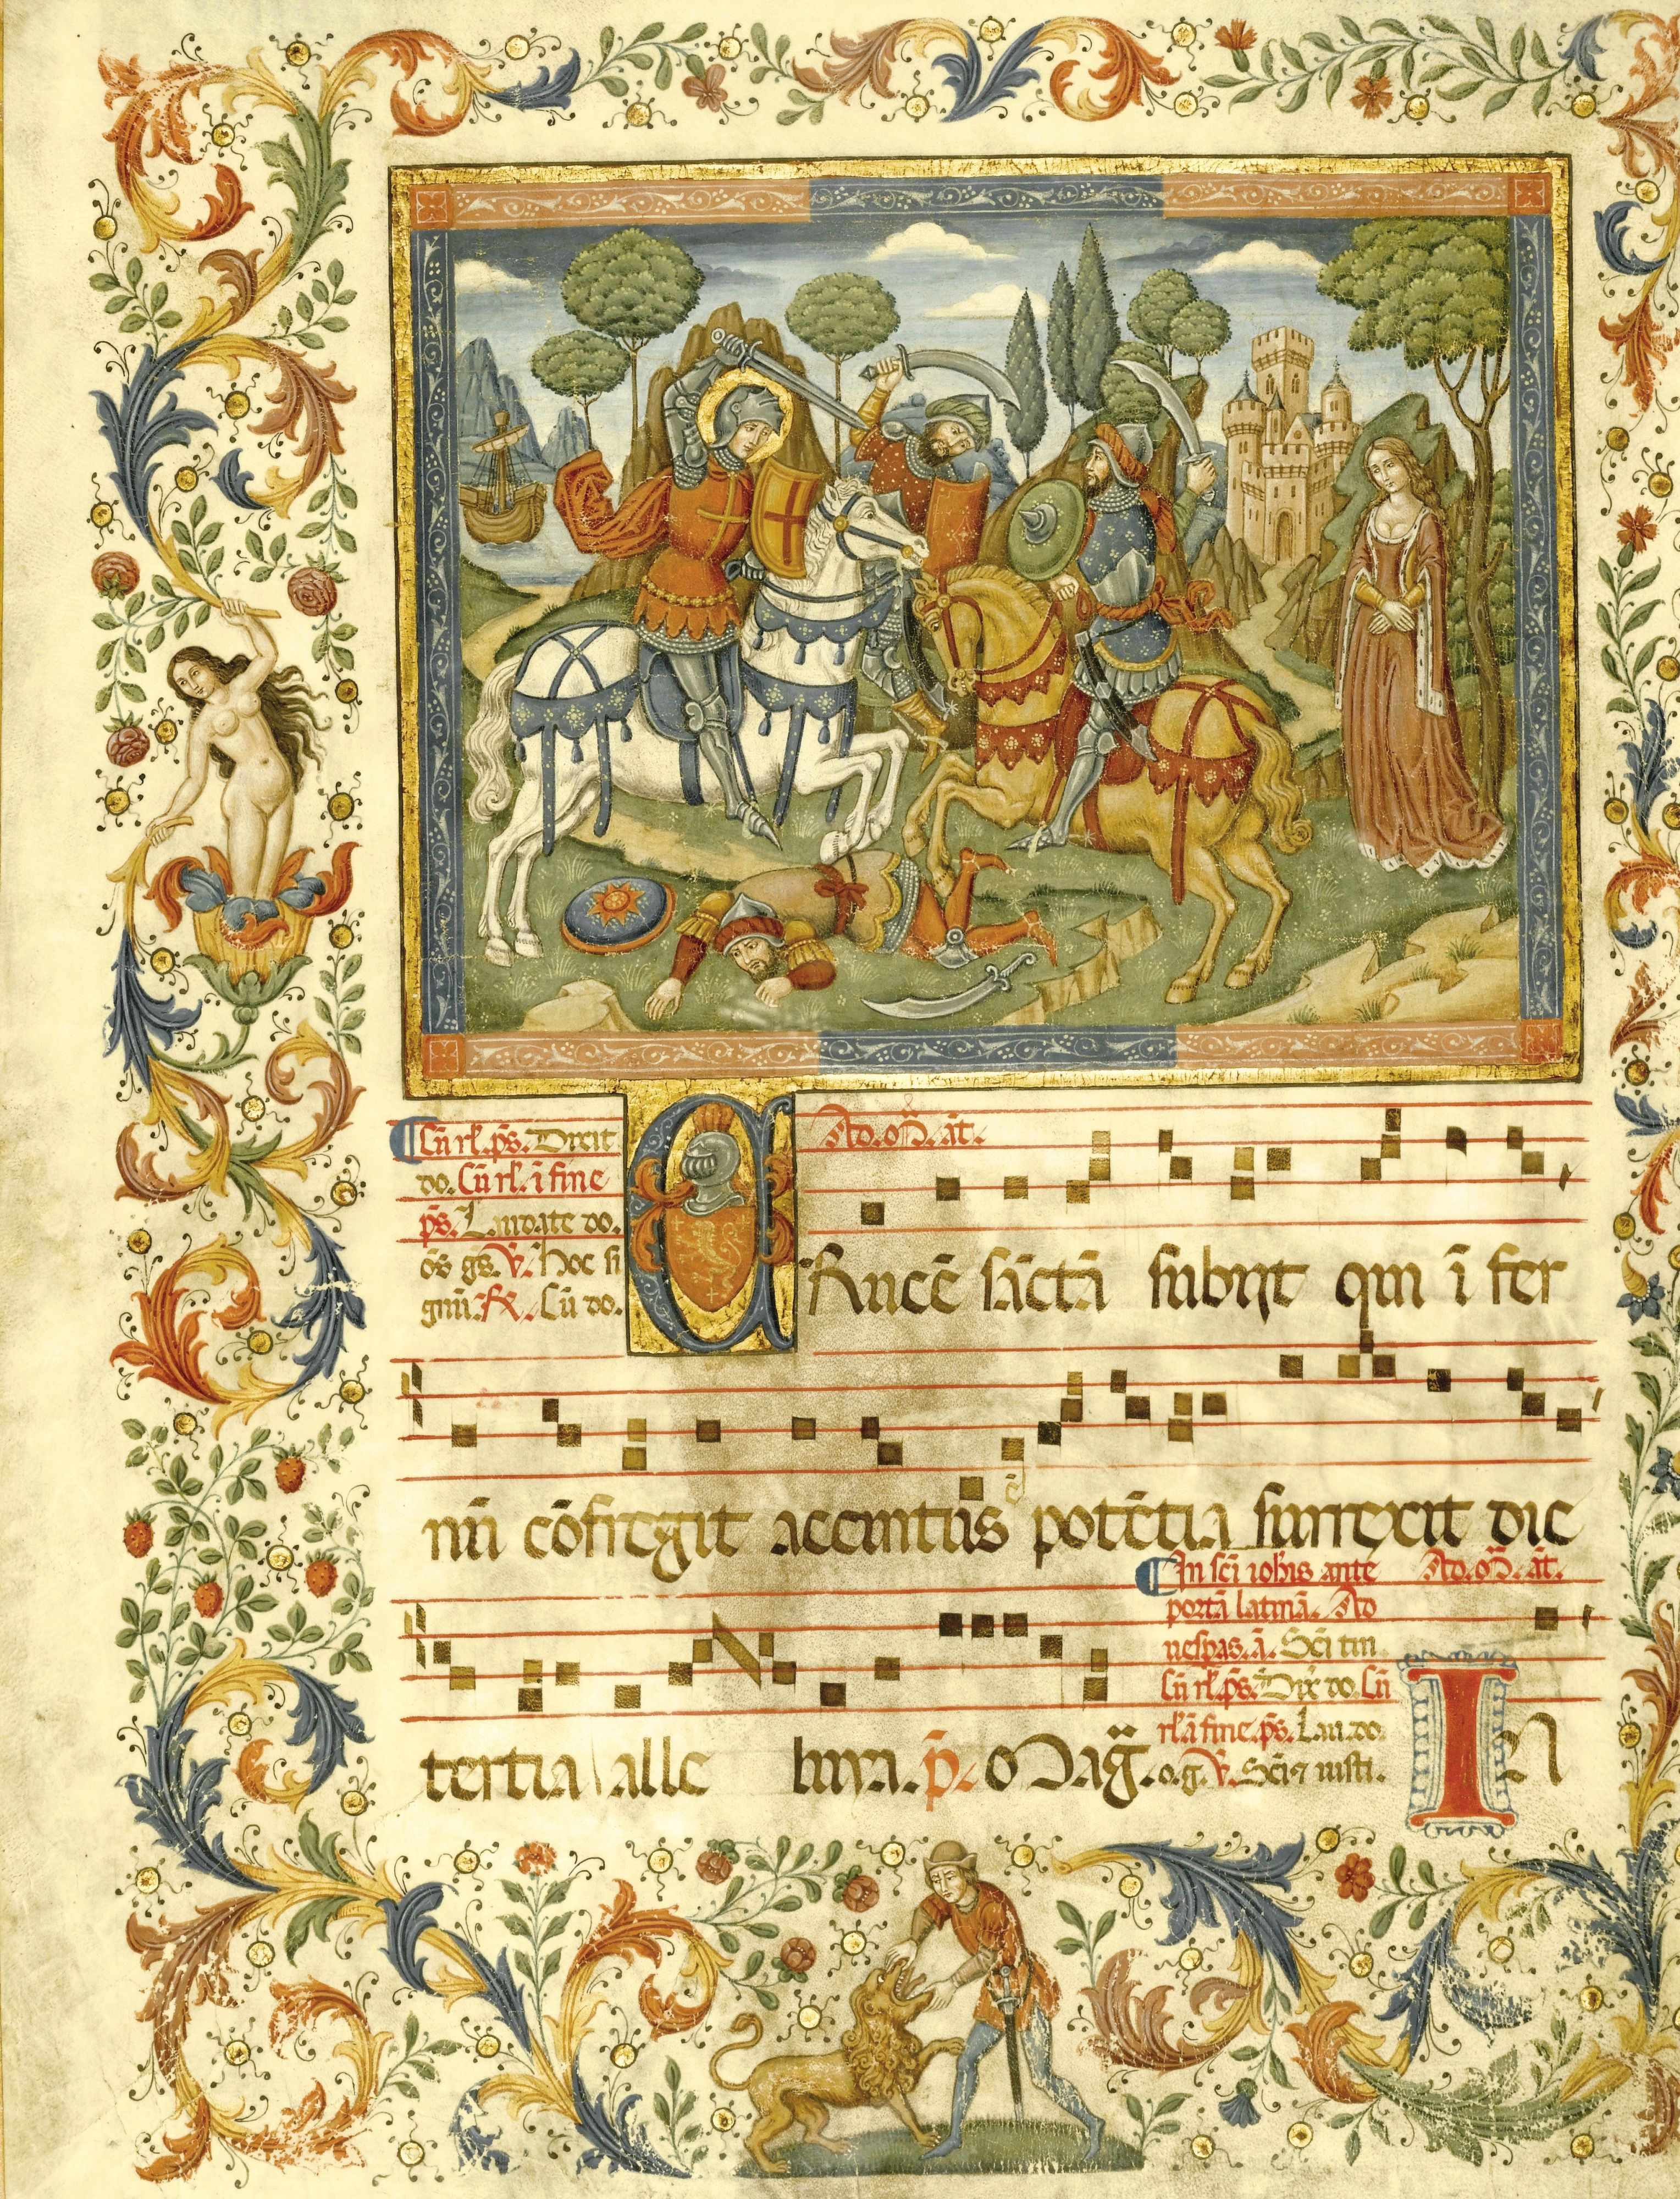 Cū rł. p̄s. Dixit
do. Cū rł. ī fine
p̄s. Laudate do.
ōs gs. v̄. Hoc si
gnū. R. Cū do.
Ad. ōɔ. āt.
Crucē sāctā subiit qui ī fer
nū cōfregit accintus potētia surrexit die
tertia alle luya. p̄. Mag̃.
In sci iohis ante
portā latinā. Ad
vespas. ā. Sci tui
Cū rł. p̄s. Dix do. Cū
rł. ā fine. p̄s. Lau. do.
o. g. v̄. Sci ⁊ iusti.
Ad. ōɔ. āt.
In